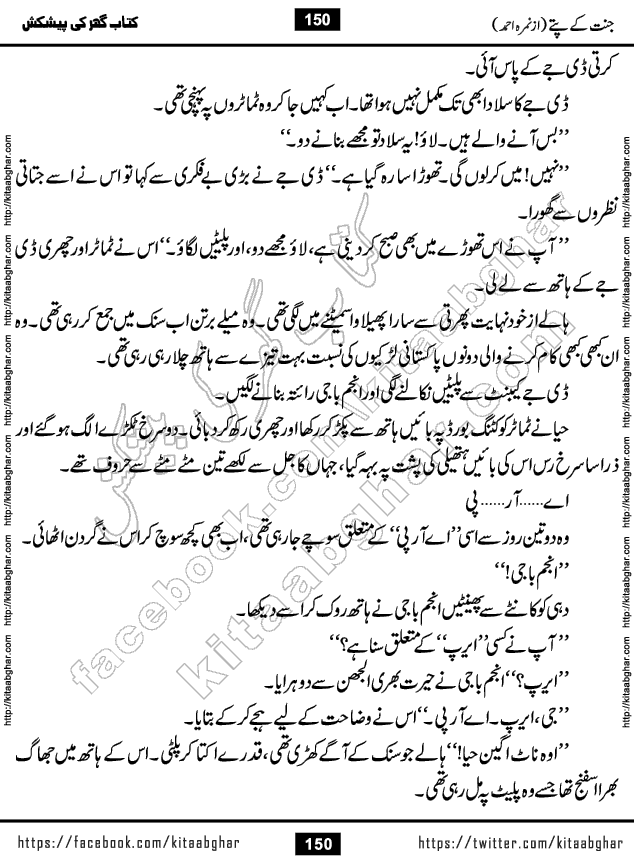 جنت کے پتے (از نمرہ احمد)
150
کتاب گھر کی پیشکش
کرتی ڈی جے کے پاس آئی۔
ڈی جے کا سلاد ابھی تک مکمل نہیں ہوا تھا۔ اب کہیں جا کر وہ ٹماٹروں پہ پہنچی تھی۔
”بس آنے والے ہیں۔ لاؤ! یہ سلاد تو مجھے بنانے دو۔“
”نہیں! میں کر لوں گی۔ تھوڑا سا رہ گیا ہے۔“ ڈی جے نے بڑی بے فکری سے کہا تو اس نے اسے جتاتی
نظروں سے گھورا۔
”آپ نے اس تھوڑے میں بھی صبح کر دینی ہے، لاؤ مجھے دو، اور پلیٹیں لگاؤ۔“ اس نے ٹماٹر اور چھری ڈی
جے کے ہاتھ سے لے لی۔
ہالے از خود نہایت پھرتی سے سارا پھیلاوا سمیٹنے میں لگی تھی۔ وہ میلے برتن اب سنک میں جمع کر رہی تھی۔ وہ
ان کبھی کبھی کام کرنے والی دونوں پاکستانی لڑکیوں کی نسبت بہت تیزے سے ہاتھ چلا رہی رہی تھی۔
ڈی جے کیبنٹ سے پلیٹیں نکالنے لگی اور انجم باجی رائتہ بنانے لگیں۔
حیا نے ٹماٹر کو کٹنگ بورڈ پہ بائیں ہاتھ سے پکڑ کر رکھا اور چھری رکھ کر دبائی۔ دو سرخ ٹکڑے الگ ہو گئے اور
ذرا سا سرخ رس اس کی بائیں ہتھیلی کی پشت پہ بہہ گیا، جہاں کاجل سے لکھے تین مٹے مٹے سے حروف تھے۔
اے......آر...... پی
وہ دو تین روز سے اسی ”اے آر پی“ کے متعلق سوچے جا رہی تھی، اب بھی کچھ سوچ کر اس نے گردن اٹھائی۔
”انجم باجی!“
دہی کو کانٹے سے پھینٹیں انجم باجی نے ہاتھ روک کر اسے دیکھا۔
”آپ نے کسی ”ایرپ“ کے متعلق سنا ہے؟“
”ایرپ؟“ انجم باجی نے حیرت بھری الجھن سے دوہرایا۔
”جی، ایرپ۔ اے آر پی۔“ اس نے وضاحت کے لیے ہجے کر کے بتایا۔
”اوہ ناٹ اگین حیا!“ ہالے جو سنک کے آگے کھڑی تھی، قدرے اکتا کر پلٹی۔ اس کے ہاتھ میں جھاگ
بھرا اسفنج تھا جسے وہ پلیٹ پہ مل رہی تھی۔
کتاب گھر کی پیشکش
facebook.com/kitaabghar
kitaabghar.com
http://kitaabghar.com http://kitaabghar.com http://kitaabghar.com http://kitaabghar.com http://kitaabghar.com http://kitaabghar.com
http://kitaabghar.com http://kitaabghar.com http://kitaabghar.com http://kitaabghar.com http://kitaabghar.com http://kitaabghar.com
https://facebook.com/kitaabghar
150
https://twitter.com/kitaabghar